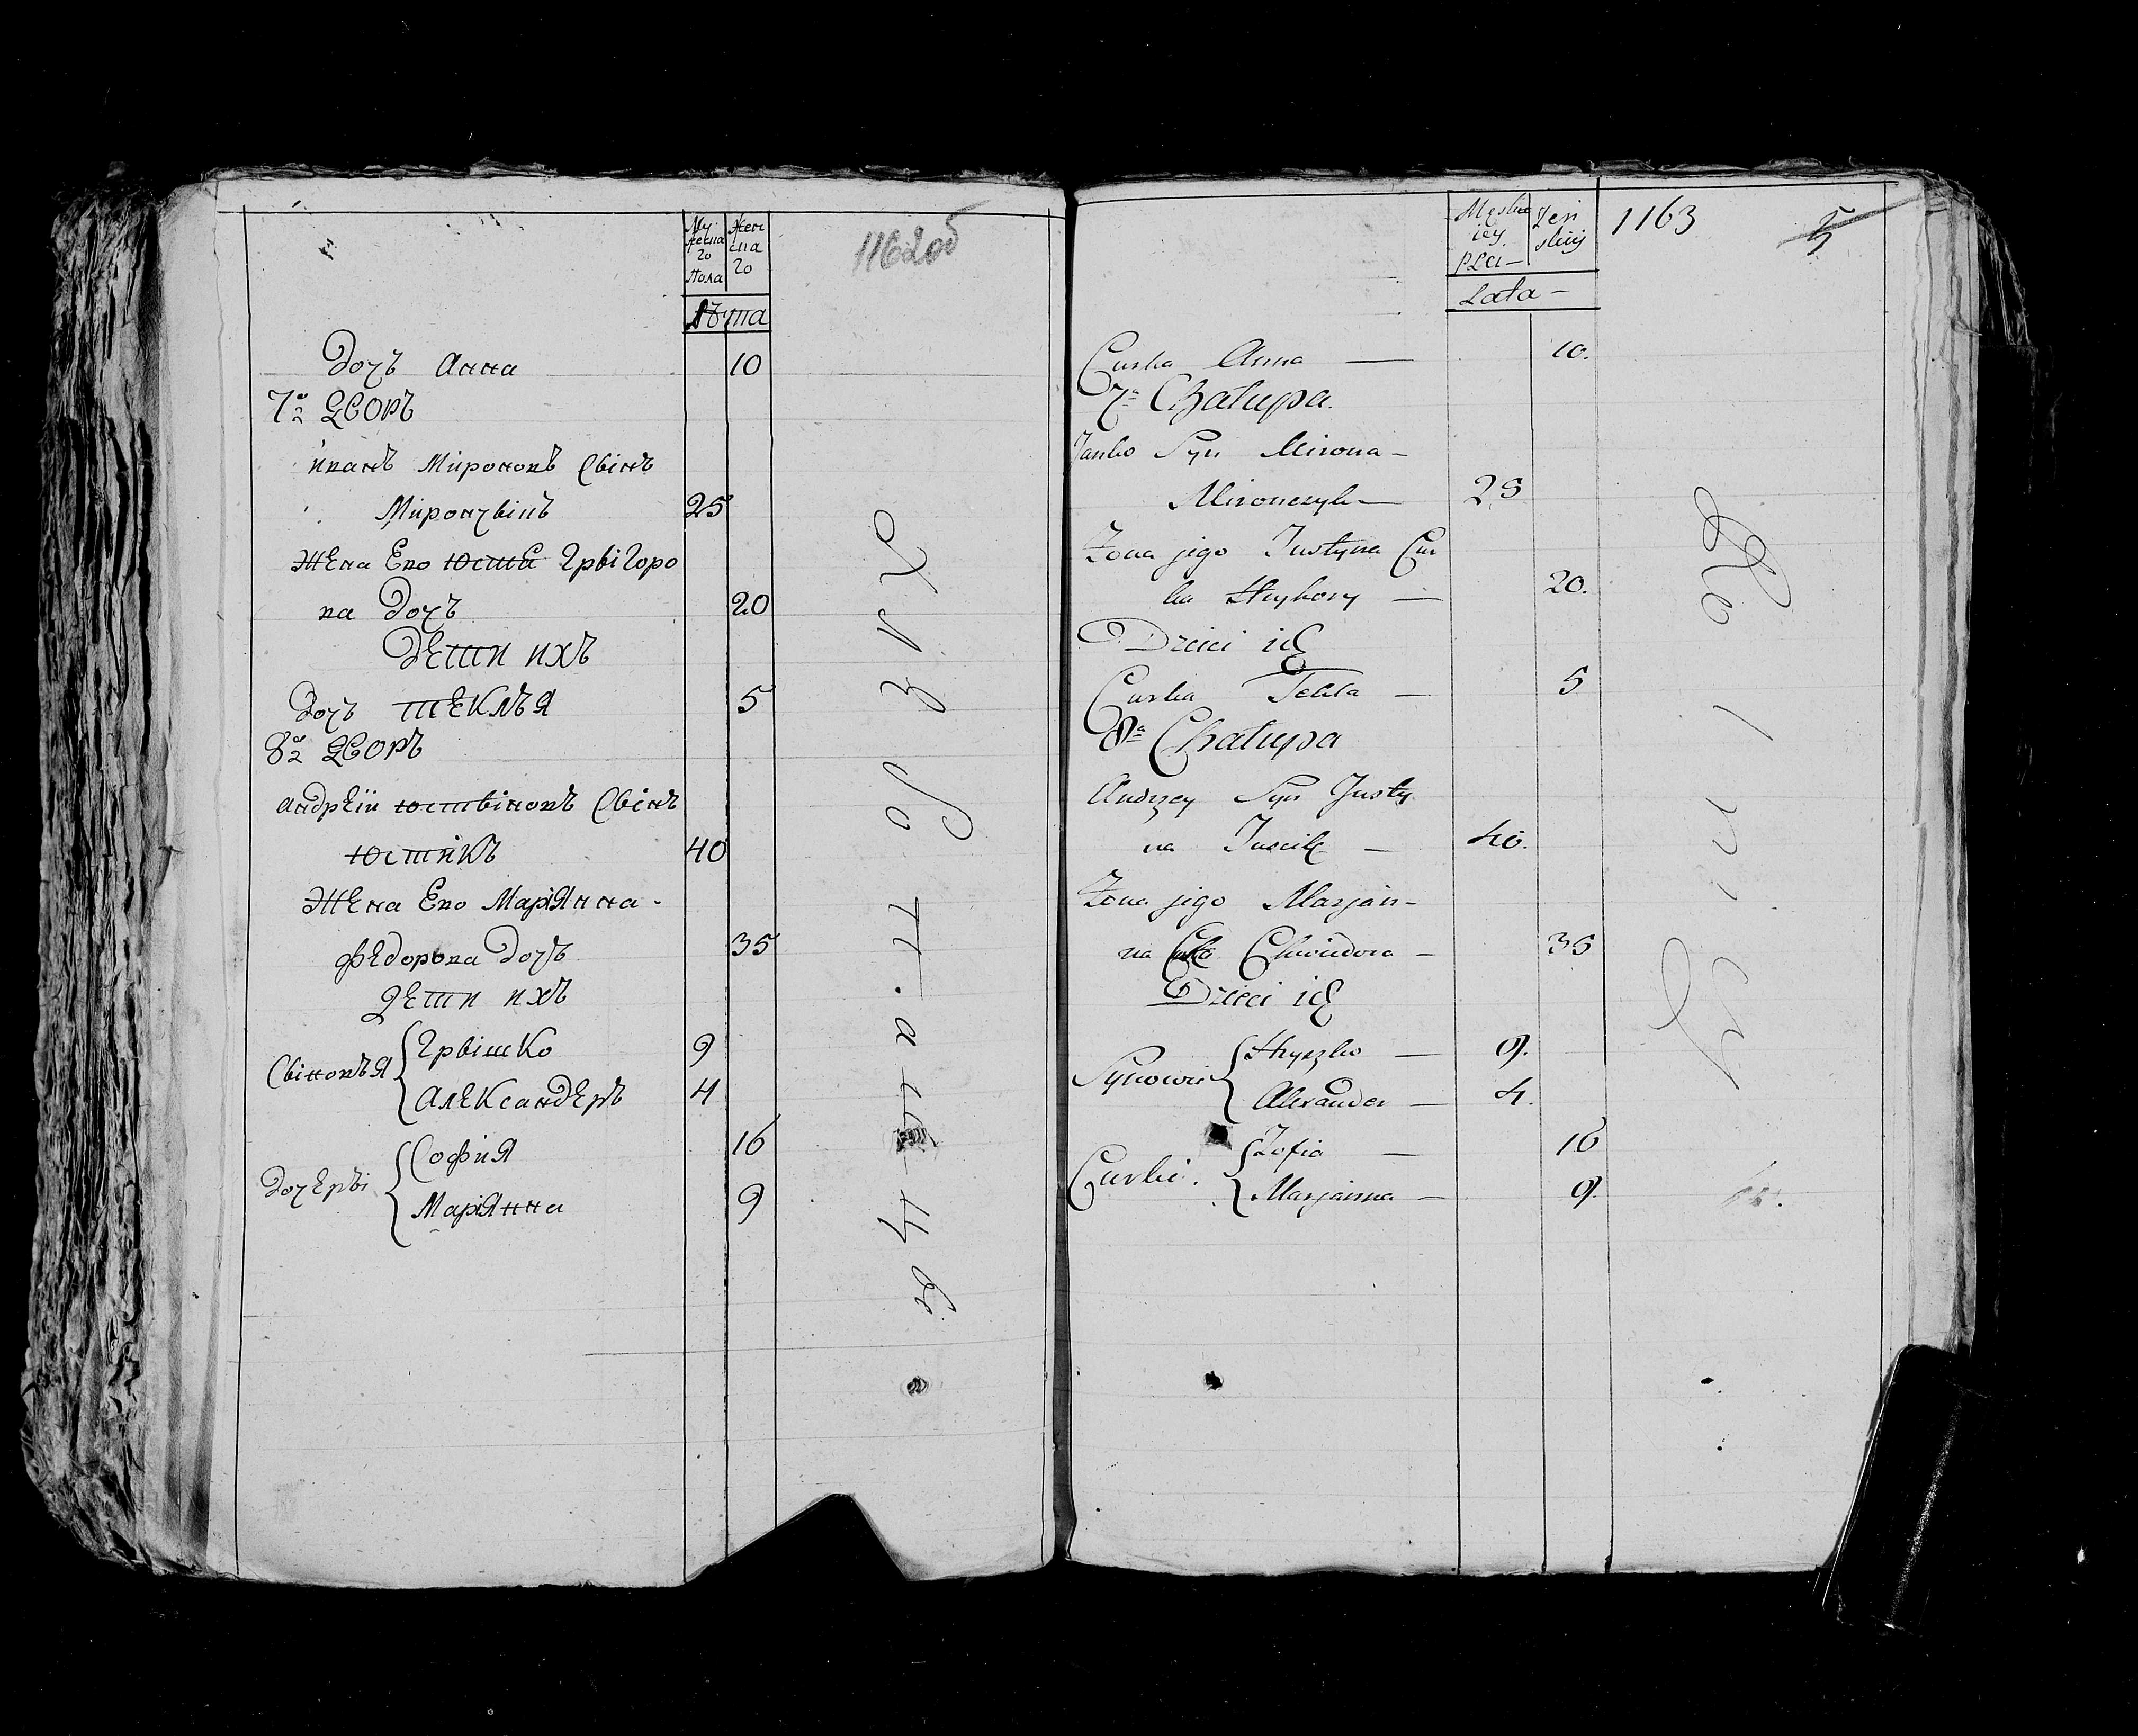 Му
жеска
го
Пола
Жен
ска
го
Лѣта
1162об
Дочъ Анна 10
7й Дворъ
Иванъ Мироновъ Свінъ
Мирончвікъ 25
Жена Ево Юстѣ Грвігоро
ва Дочъ 20
Дѣти ихъ
Дочъ Теклѣя 5
8й Дворъ
Андрѣй Юствіновъ Свінъ
Юстикъ 40
Жена Ево Маріянна
Федорова Дочъ 35
Дѣти ихъ
Свіновъя { Грвішко 9
Александеръ 4
Дочерві { София 16
Маріянна 9
Męskie
iey
Płci
Żeń
skiey
Lata
1163
5
Curka Anna — 10.
7a Chałupa.
Janko Syn Mirona
Mironczyk — 25
Żona jego Justyna Cur
ka Hryhory — 20.
Dzieci ich
Curka Tekla — 5
8a Chałupa
Andrzey Syn Justy
na Juscik — 40.
Żona jego Marjan-
na Curka Chwiedora — 35
Dzieci ich
Synowie { Hryszko — 9.
Alexander — 4.
Curki. { Zofia — 16
Marjanna — 9.